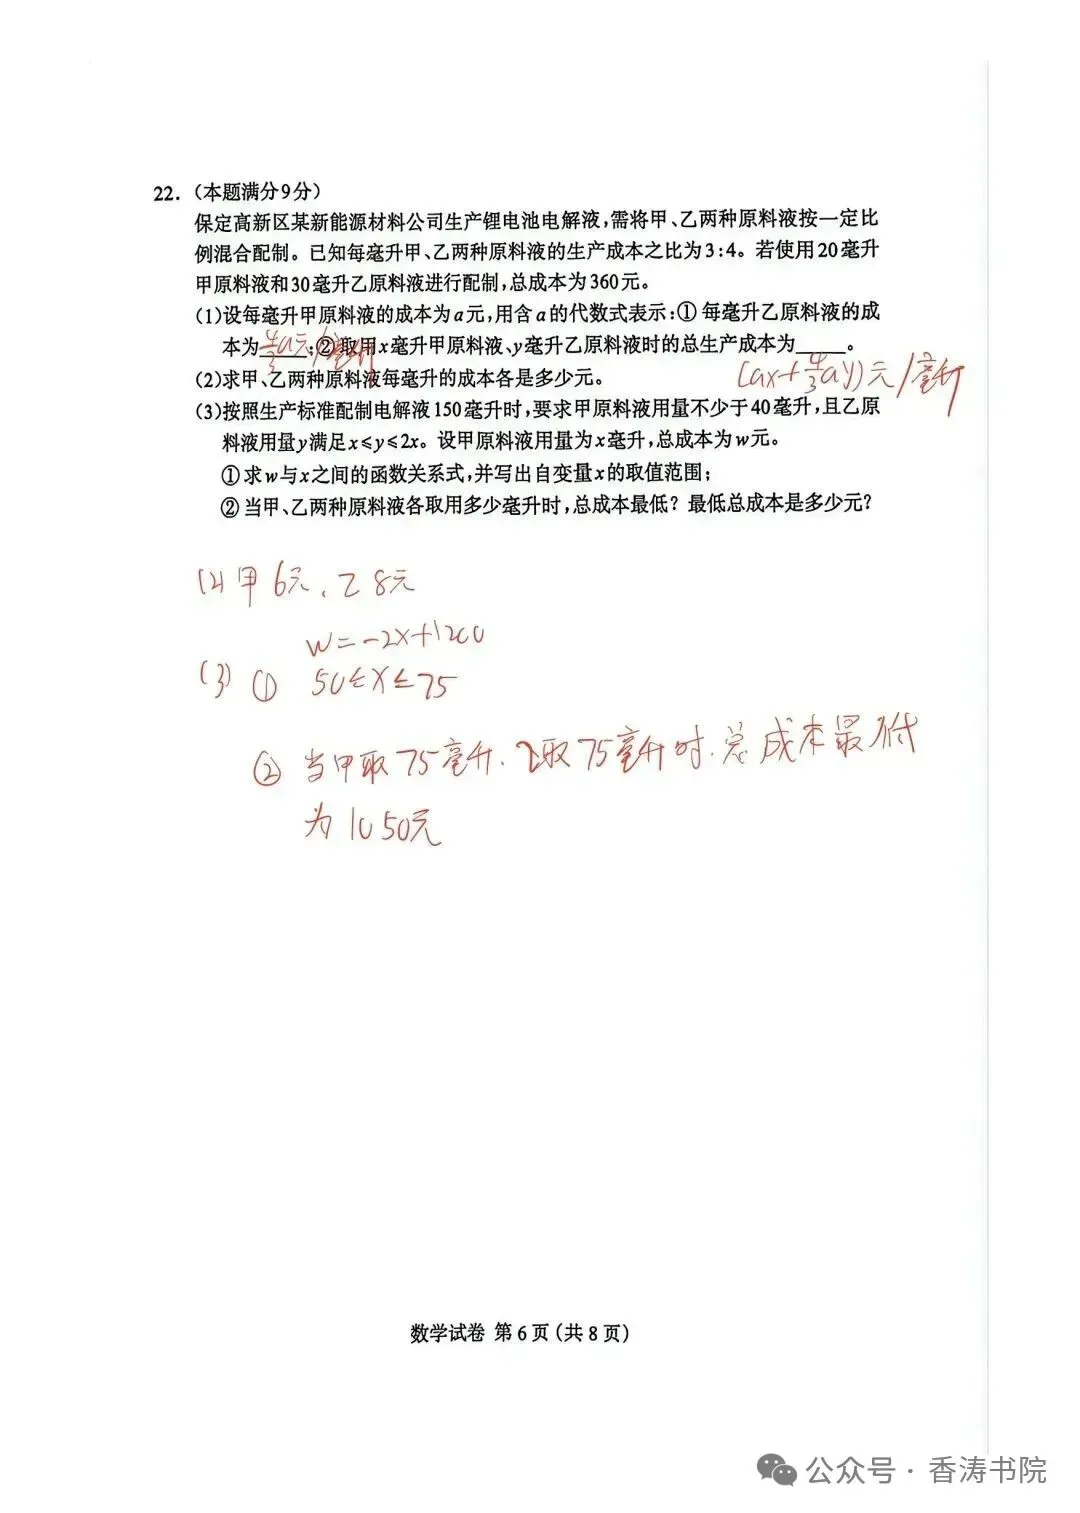 22.(本题满分9分)
保定高新区某新能源材料公司生产锂电池电解液,需将甲、乙两种原料液按一定比
例混合配制。已知每毫升甲、乙两种原料液的生产成本之比为3:4。若使用20毫升
甲原料液和30毫升乙原料液进行配制,总成本为360元。
(1)设每毫升甲原料液的成本为a元,用含a的代数式表示:①每毫升乙原料液的成
本为 4/3 a元/毫升 ;②取用x毫升甲原料液、y毫升乙原料液时的总生产成本为_____。
(ax+4/3 ay)元/毫升
(2)求甲、乙两种原料液每毫升的成本各是多少元。
(3)按照生产标准配制电解液150毫升时,要求甲原料液用量不少于40毫升,且乙原
料液用量y满足x≤y≤2x。设甲原料液用量为x毫升,总成本为w元。
①求w与x之间的函数关系式,并写出自变量x的取值范围;
②当甲、乙两种原料液各取用多少毫升时,总成本最低?最低总成本是多少元?
(2)甲6元、乙8元
w=-2x+1200
(3)① 50≤x≤75
② 当甲取75毫升、乙取75毫升时.总成本最低
为1050元
数学试卷 第6页(共8页)
公众号·香涛书院